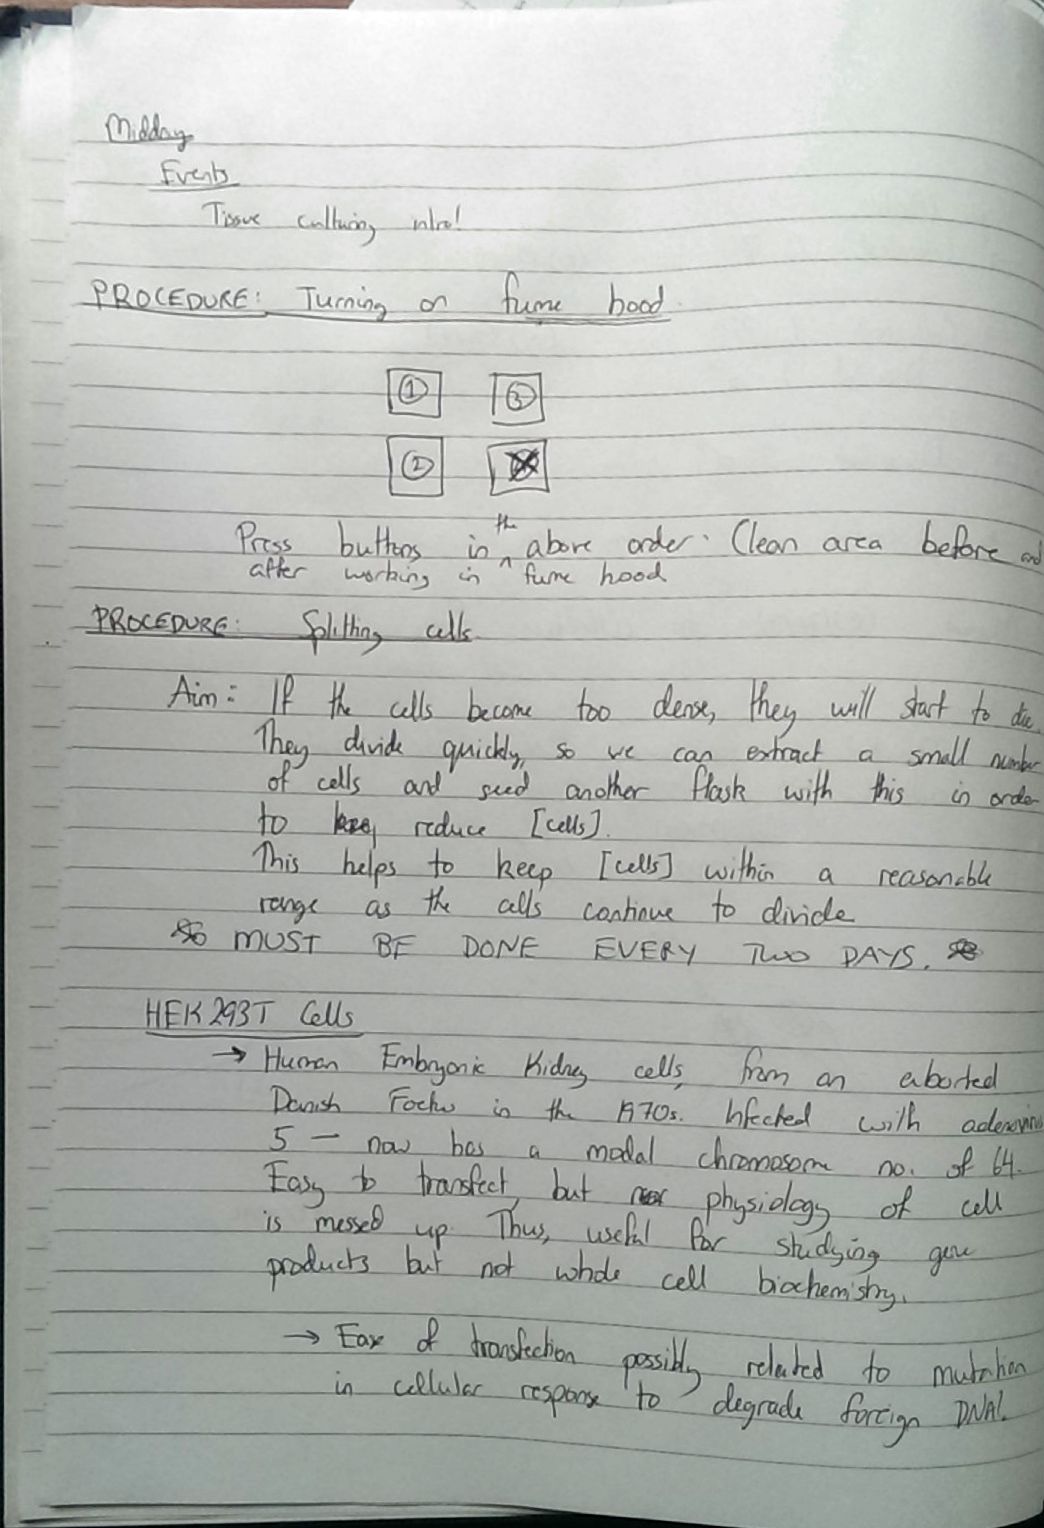 Midday
Events
Tissue culturing intro!
PROCEDURE: Turning on fume hood
① ③
②
Press buttons in the above order. Clean area before and
after working in fume hood
PROCEDURE: Splitting cells
Aim: If the cells become too dense, they will start to die.
They divide quickly, so we can extract a small number
of cells and seed another flask with this in order
to reduce [cells].
This helps to keep [cells] within a reasonable
range as the cells continue to divide
MUST BE DONE EVERY TWO DAYS.
HEK 293T Cells
→ Human Embryonic Kidney cells, from an aborted
Danish Foetus in the 1970s. Infected with adenovirus
5 — now has a modal chromosome no. of 64.
Easy to transfect, but physiology of cell
is messed up. Thus, useful for studying gene
products but not whole cell biochemistry.
→ Ease of transfection possibly related to mutation
in cellular response to degrade foreign DNA!